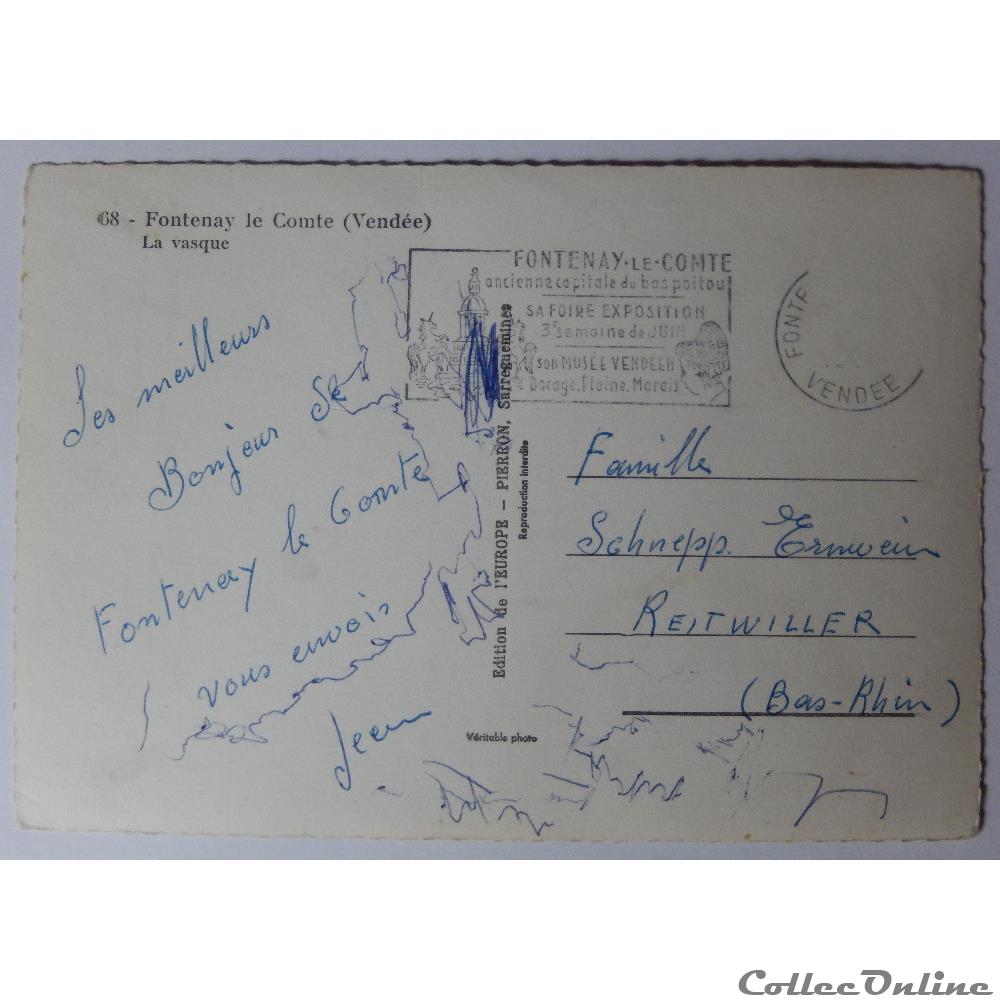 68 - Fontenay le Comte (Vendée)
La vasque
FONTENAY-LE-COMTE
ancienne capitale du bas poitou
SA FOIRE EXPOSITION
3e semaine de JUIN
son MUSÉE VENDEEN
Bocage, Plaine, Marais
FONTE
VENDEE
Les meilleurs
Bonjour De
Fontenay le Comte
vous envois
Jean
Edition de l'EUROPE – PIERRON, Sarreguemines
Reproduction interdite
Véritable photo
Famille
Schnepp. Ernwein
REITWILLER
(Bas-Rhin)
CollecOnline